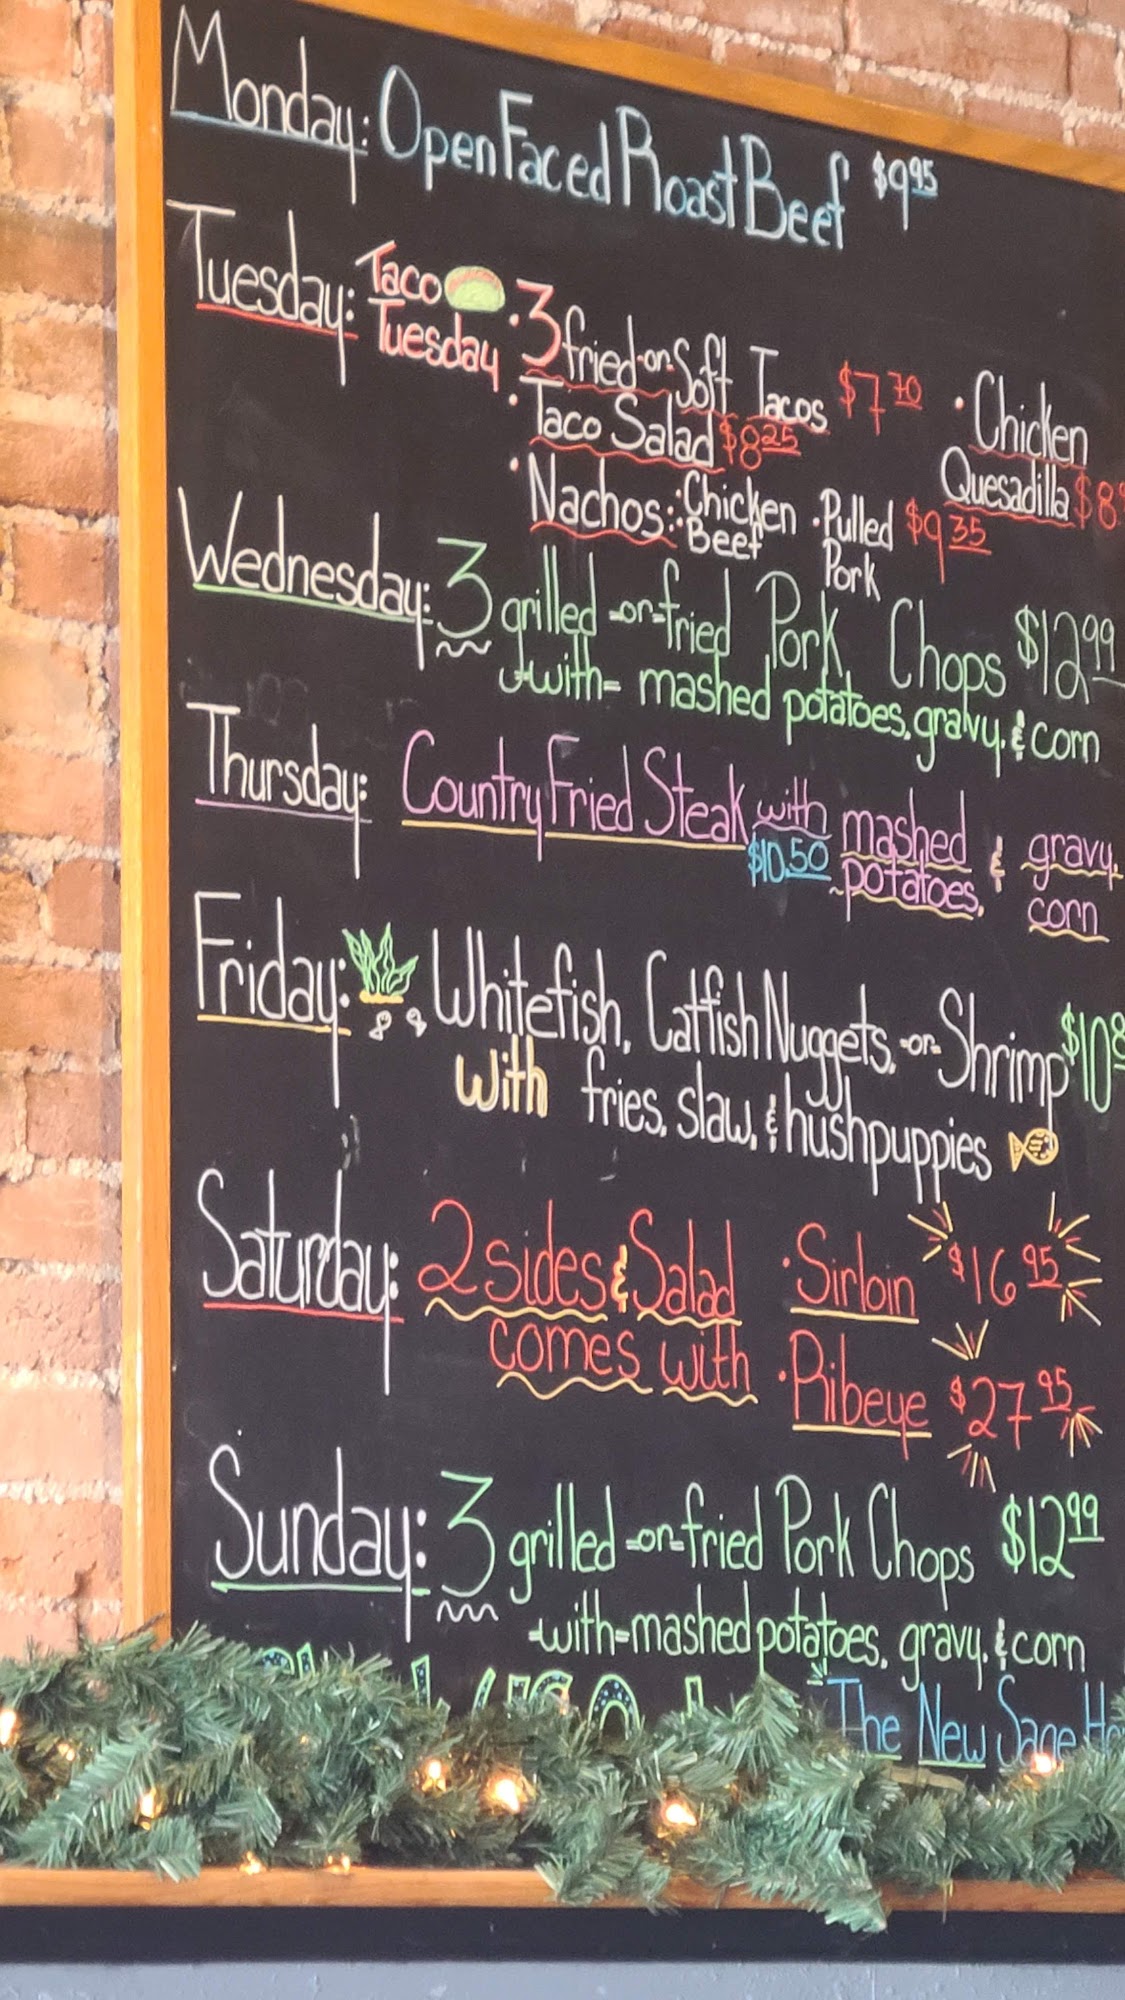 Monday: Open Faced Roast Beef $9.95
Tuesday: Taco Tuesday · 3 fried -or- Soft Tacos $7.70
· Taco Salad $8.25
· Nachos: · Chicken · Beef · Pulled Pork $9.35
· Chicken Quesadilla $8.
Wednesday: 3 grilled -or- fried Pork Chops $12.99
-with- mashed potatoes, gravy, & corn
Thursday: Country Fried Steak with mashed potatoes, & gravy, corn
$10.50
Friday: Whitefish, Catfish Nuggets, -or- Shrimp $10.
With fries, slaw, & hushpuppies
Saturday: 2 sides & Salad comes with
· Sirloin $16.95
· Ribeye $27.95
Sunday: 3 grilled -or- fried Pork Chops $12.99
-with- mashed potatoes, gravy, & corn
The New Sage